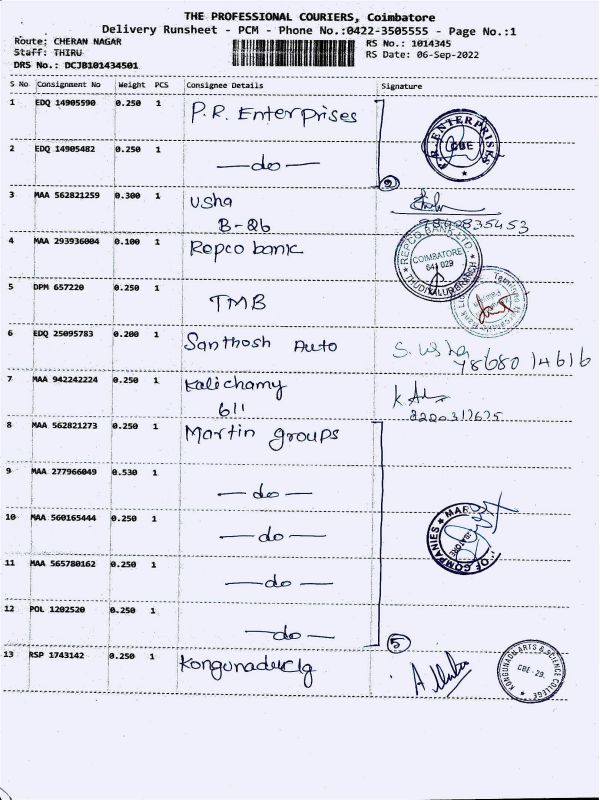 THE PROFESSIONAL COURIERS, Coimbatore
Delivery Runsheet - PCM - Phone No.:0422-3505555 - Page No.:1
Route: CHERAN NAGAR
Staff: THIRU
DRS No.: DCJB101434501
RS No.: 1014345
RS Date: 06-Sep-2022
S No Consignment No Weight PCS Consignee Details Signature
1 EDQ 14905590 0.250 1 P.R. Enterprises
2 EDQ 14905482 0.250 1 —do—
2
P.R. ENTERPRISES
CBE
3 MAA 562821259 0.300 1 Usha
B-26
4 MAA 293936004 0.100 1 Repco bank
REPCO BANK LTD.
COIMBATORE
641 029
THUDIYALUR BRANCH
5 DPM 657220 0.250 1 TMB
6 EDQ 25095783 0.200 1 Santhosh Auto S. Usha
78680 14616
7 MAA 942242224 0.250 1 Kalichamy
611
8 MAA 562821273 0.250 1 Martin groups
9 MAA 277966049 0.530 1 —do—
10 MAA 560165444 0.250 1 —do—
11 MAA 565780162 0.250 1 —do—
12 POL 1202520 0.250 1 —do—
5
OF COMPANIES ★ MAR
13 RSP 1743142 0.250 1 Kongunaduclg
KONGUNADU ARTS & SCIENCE COLLEGE
CBE - 29.